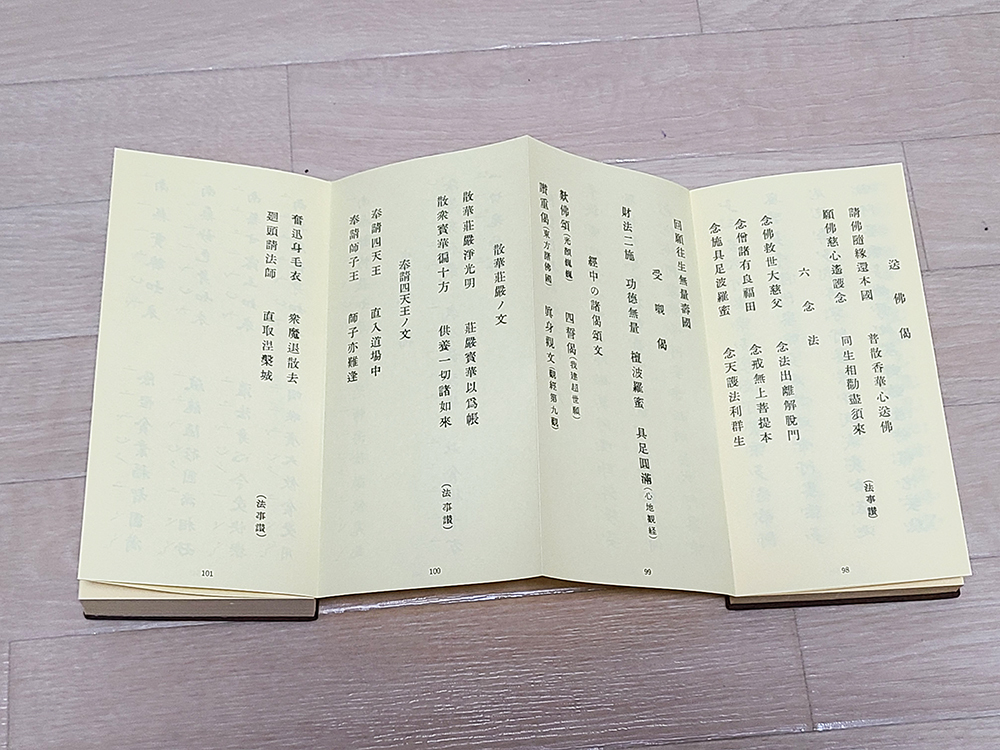 送佛偈
請佛隨緣還本國 普散香華心送佛
願佛慈心遙護念 同生相勸盡須來
(法事讃)
六念法
念佛救世大慈父 念法出離解脫門
念僧諸有良福田 念戒無上菩提本
念施具足波羅蜜 念天護法利群生
98
回願往生無量壽國
受嚫偈
財法二施 功德無量 檀波羅蜜 具足圓滿(心地觀経)
經中の諸偈頌文
歎佛頌(光顏巍巍) 四誓偈(我建超世願)
讚重偈(東方諸佛國) 眞身觀文(觀経第九觀)
99
散華莊嚴ノ文
散華莊嚴淨光明 莊嚴寶華以爲帳
散衆寶華徧十方 供養一切諸如來
(法事讃)
奉請四天王ノ文
奉請四天王 直入道場中
奉請師子王 師子亦難逢
100
奮迅身毛衣 衆魔退散去
廻頭請法師 直取涅槃城
(法事讃)
101